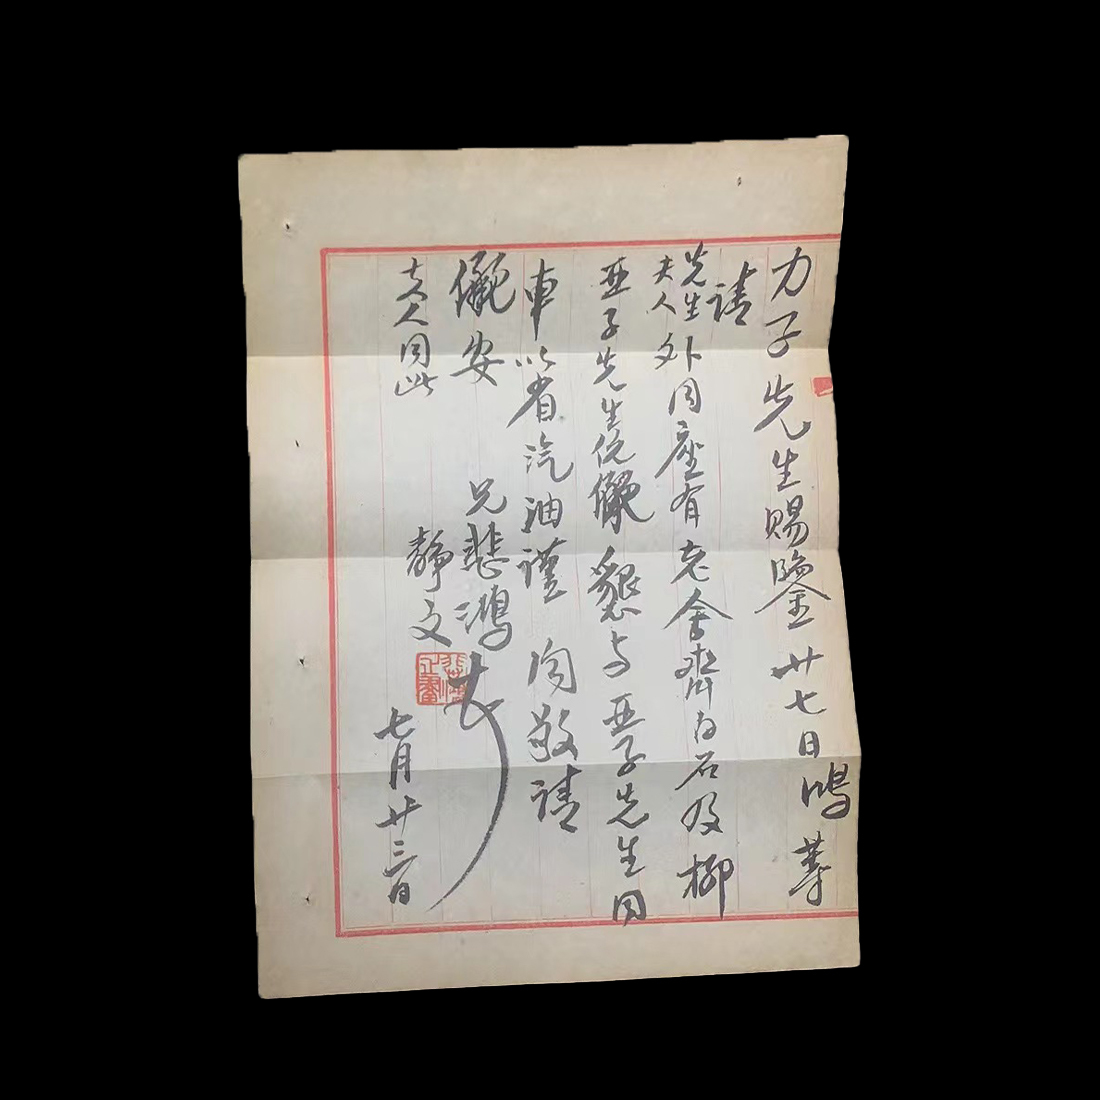 力子先生賜鑒廿七日鴻等
請
先生夫人外同座有老舍齊白石及柳
亞子先生伉儷懇与亞子先生同
車以省汽油謹敬請
儷安
悲鴻
夫人同此
靜文
七月廿三日